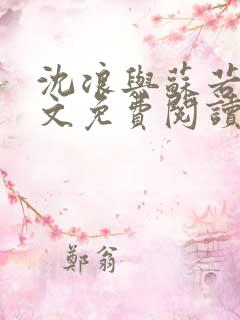 沈浪與蘇若
文免費閱讀
鄭翁